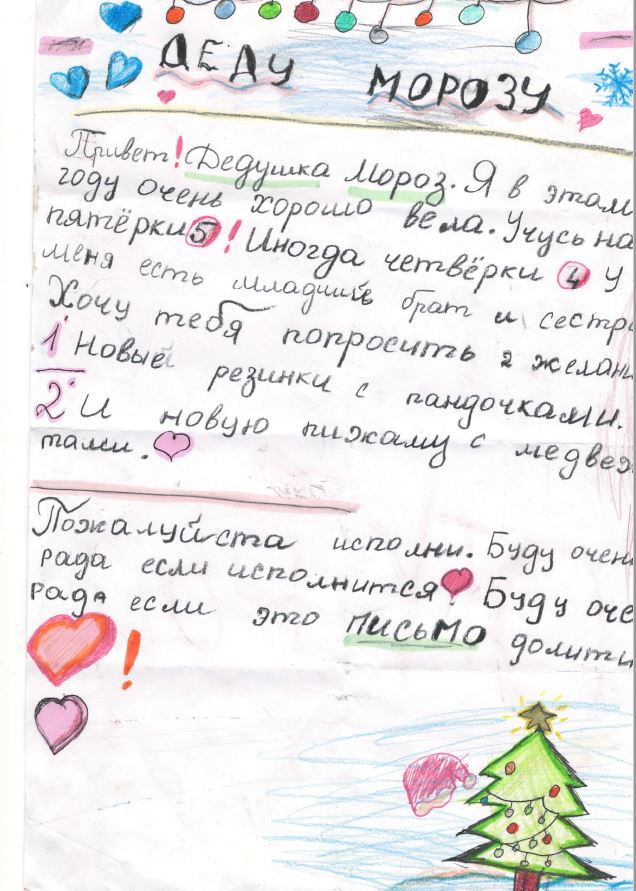 ДЕДУ МОРОЗУ
Привет! Дедушка Мороз. Я в этом
году очень хорошо вела. Учусь на
пятёрки 5! Иногда четвёрки 4 У
меня есть младший брат и сестр
Хочу тебя попросить 2 желани
1 Новые резинки с пандочками.
2 И новую пижаму с медвеж
тами.
Пожалуйста исполни. Буду очень
рада если исполнится Буду оче
рада если это письмо долити
!